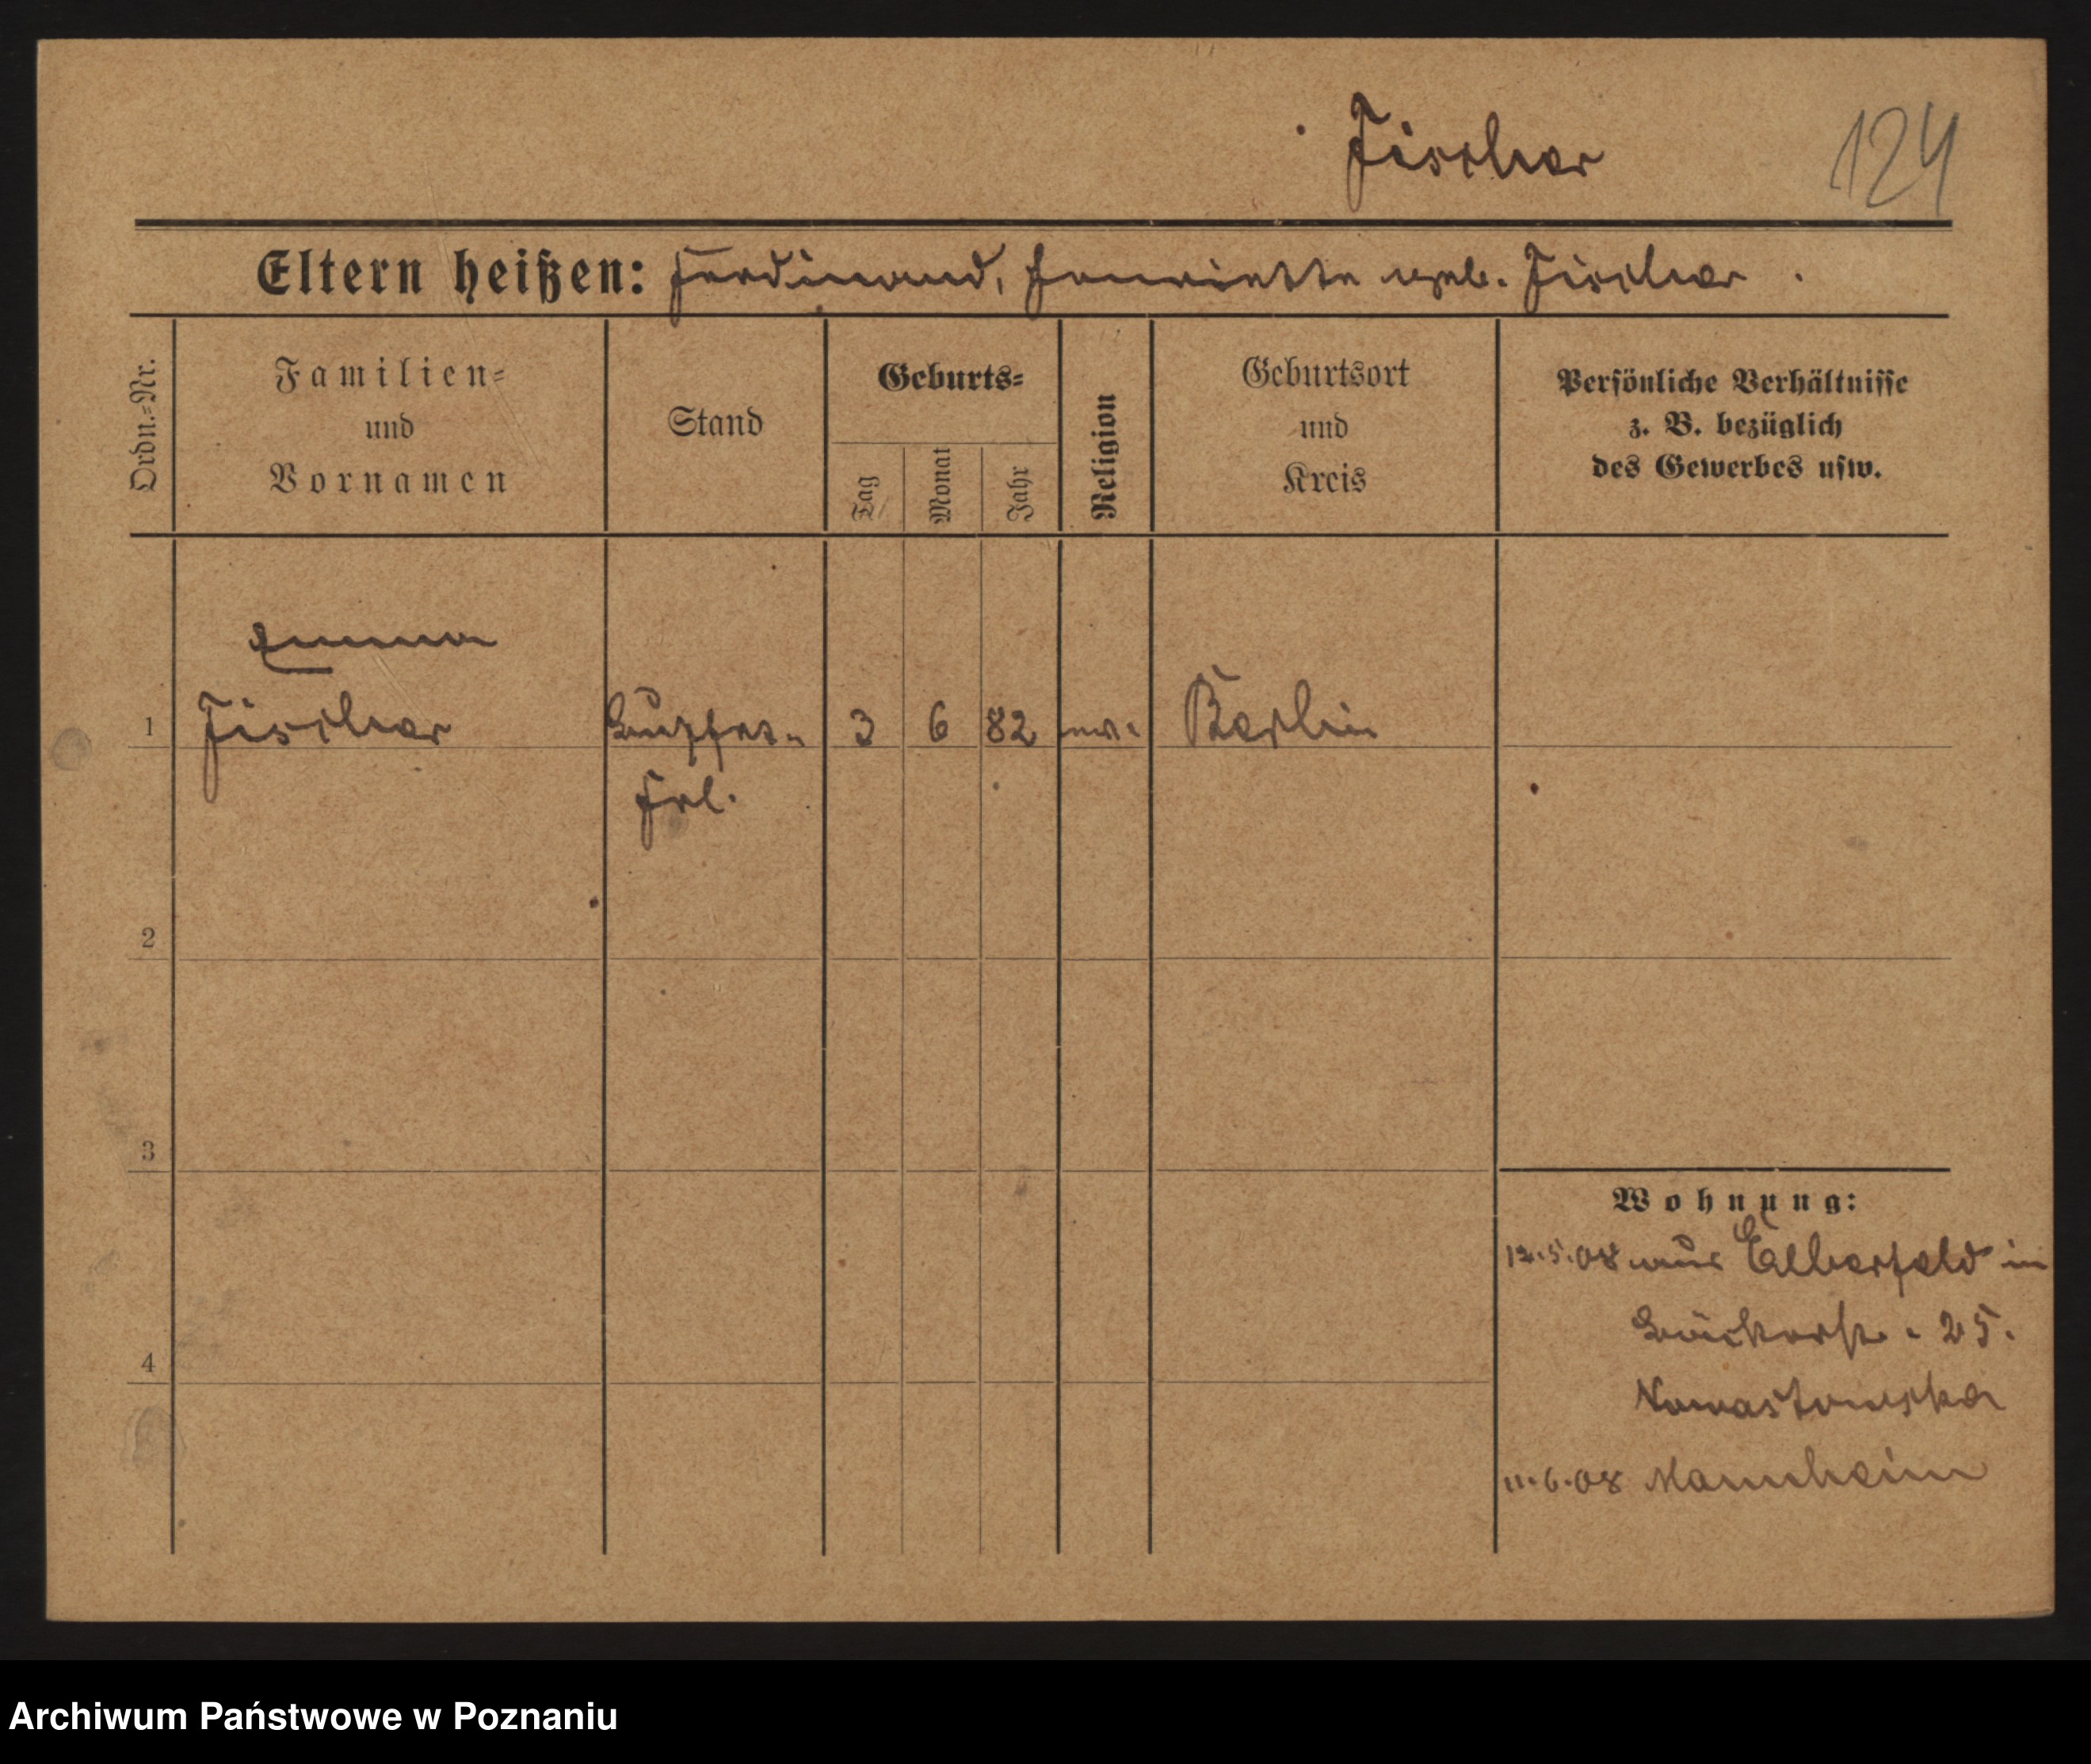 Fischer
124
Eltern heißen: Ferdinand, Henriette geb. Fischer.
Ordn.=Nr.
Familien=
und
Vornamen
Stand
Geburts=
Tag
Monat
Jahr
Religion
Geburtsort
und
Kreis
Persönliche Verhältnisse
z. B. bezüglich
des Gewerbes usw.
Emma
1 Fischer 3 6 82 Berlin
Frl.
2
3
4
Wohnung:
12.5.08 aus Elberfeld in
Bäckerstr. 25.
11.6.08 Mannheim
Archiwum Państwowe w Poznaniu